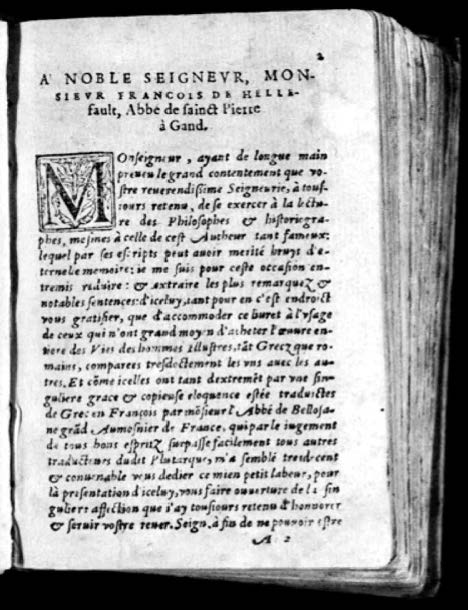 2
A' NOBLE SEIGNEVR, MON-
SIEVR FRANCOIS DE HELLE-
fault, Abbé de sainct Pierre
à Gand.
MOnseigneur, ayant de longue main
preueu le grand contentement que vo-
stre reuerendissime Seigneurie, à tous-
iours retenu, de se exercer à la lectu-
re des Philosophes & historiogra-
phes, mesmes à celle de cest Autheur tant fameux:
lequel par ses escripts peut auoir merité bruyt d'e-
ternelle memoire: ie me suis pour ceste occasion en-
tremis reduire : & extraire les plus remarquez &
notables sentences d'iceluy, tant pour en c'est endroict
vous gratifier, que d'accommoder ce buret à l'vsage
de ceux qui n'ont grand moyen d'acheter l'œuure en-
tiere des Vies des hommes Illustres, tāt Grecz que ro-
mains, comparees tresdoctement les vns auec les au-
tres. Et cōme icelles ont tant dextremēt par vne sin-
guliere grace & copieuse eloquence estée traductes
de Grec en François par mōsieur l'Abbé de Bellosa-
ne grād Aumosnier de France, qui par le iugement
de tous bons espritz surpasse facilement tous autres
traducteurs dudit Plutarque, m'a semblé tresdecent
& conuenable vous dedier ce mien petit labeur, pour
là presentation d'iceluy, vous faire ouuerture de la sin
guliere affection que i'ay tousiours retenu d'honnorer
& seruir vostre reuer. Seign. à fin de ne pouuoir estre
A 2